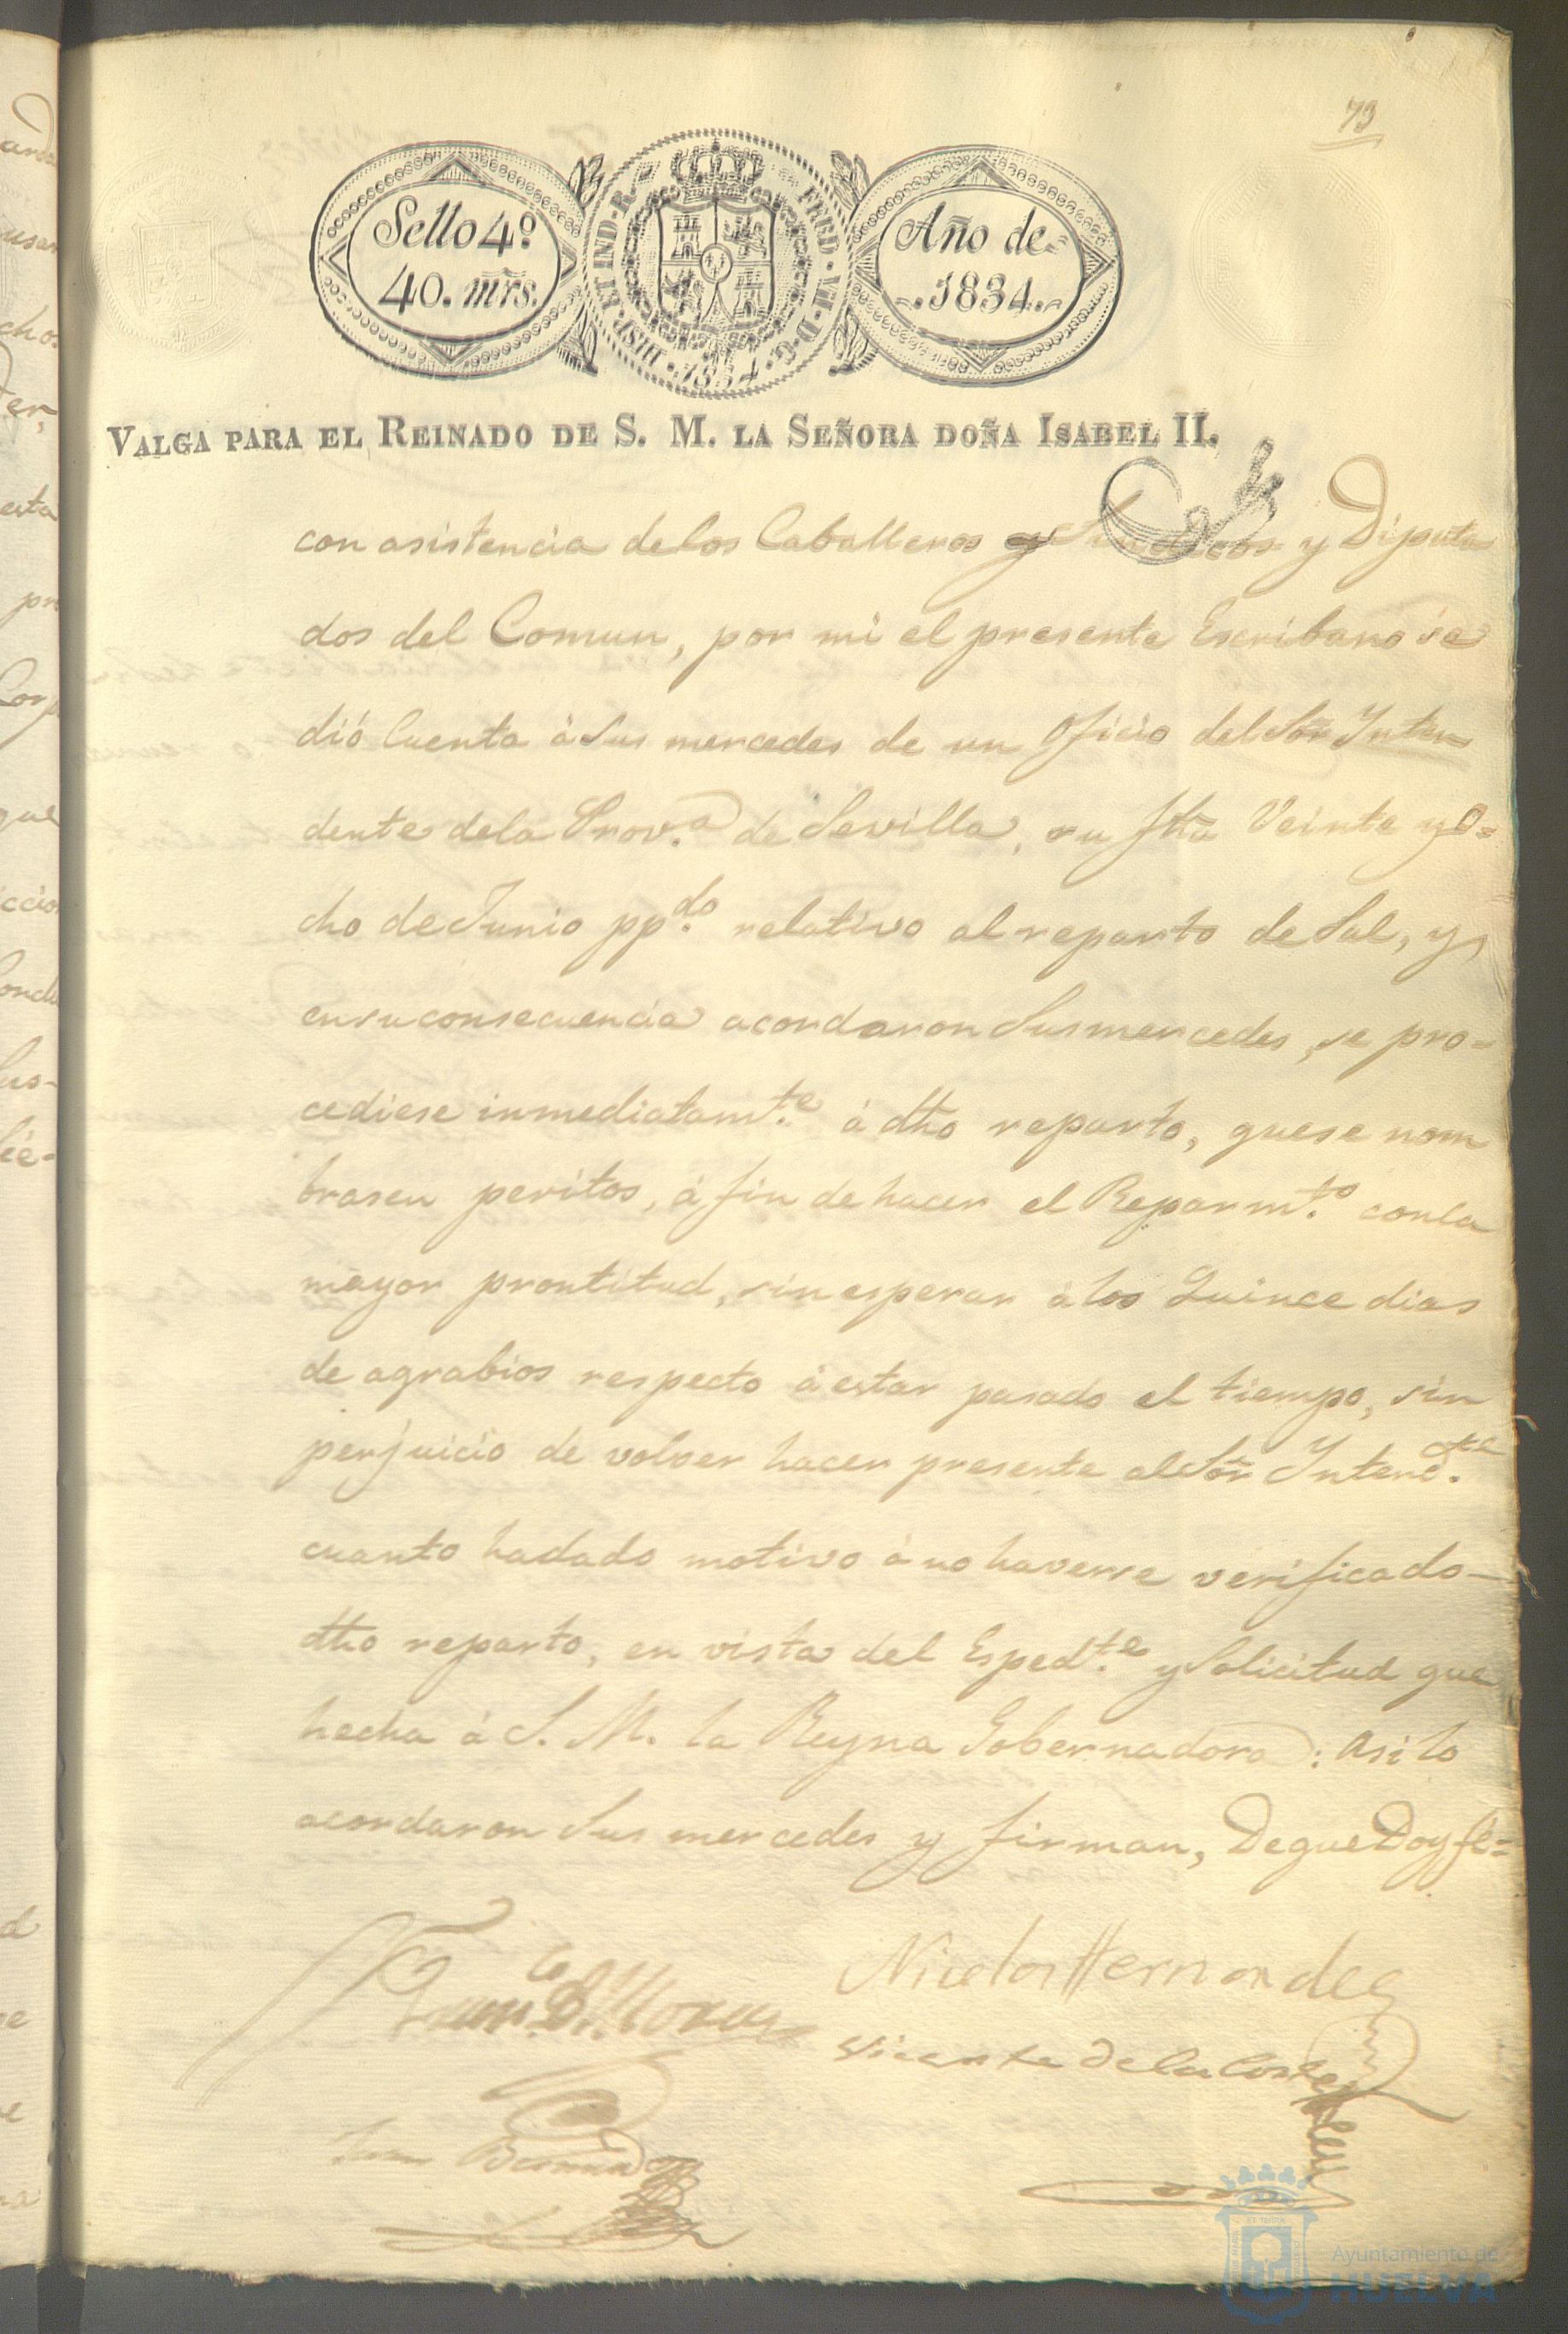 73
Sello 4º
40. mrs.
HISP. ET IND. R.
FERD. VII. D. G.
1834
Año de
1834.
VALGA PARA EL REINADO DE S. M. LA SEÑORA DOÑA ISABEL II.
con asistencia de los Caballeros y Sindicos y Diputa
dos del Comun, por mi el presente Escribano se
dió Cuenta á Sus mercedes de un Oficio del Sor Inten
dente dela Prov.a de Sevilla, su fha Veinte y o=
cho de Junio pp.do relativo al reparto de Sal, y
en su consecuencia acordaron Sus mercedes, se pro=
cediese inmediatam.te á dho reparto, que se nom
brasen peritos, á fin de hacer el Reparm.to con la
mayor prontitud, sin esperar á los Quince dias
de agrabios respecto á estar pasado el tiempo, sin
perjuicio de volver hacer presente al Sor Intend.te
cuanto ha dado motivo á no haverse verificado
dho reparto, en vista del Esped.te y Solicitud que
hecha á S. M. la Reyna Gobernadora: Asi lo
acordaron Sus mercedes y firman, De que Doy fe=
Fran.co
Nicolas Hernandez
Vicente de la Corte
Juan
Ayuntamiento de
HUELVA